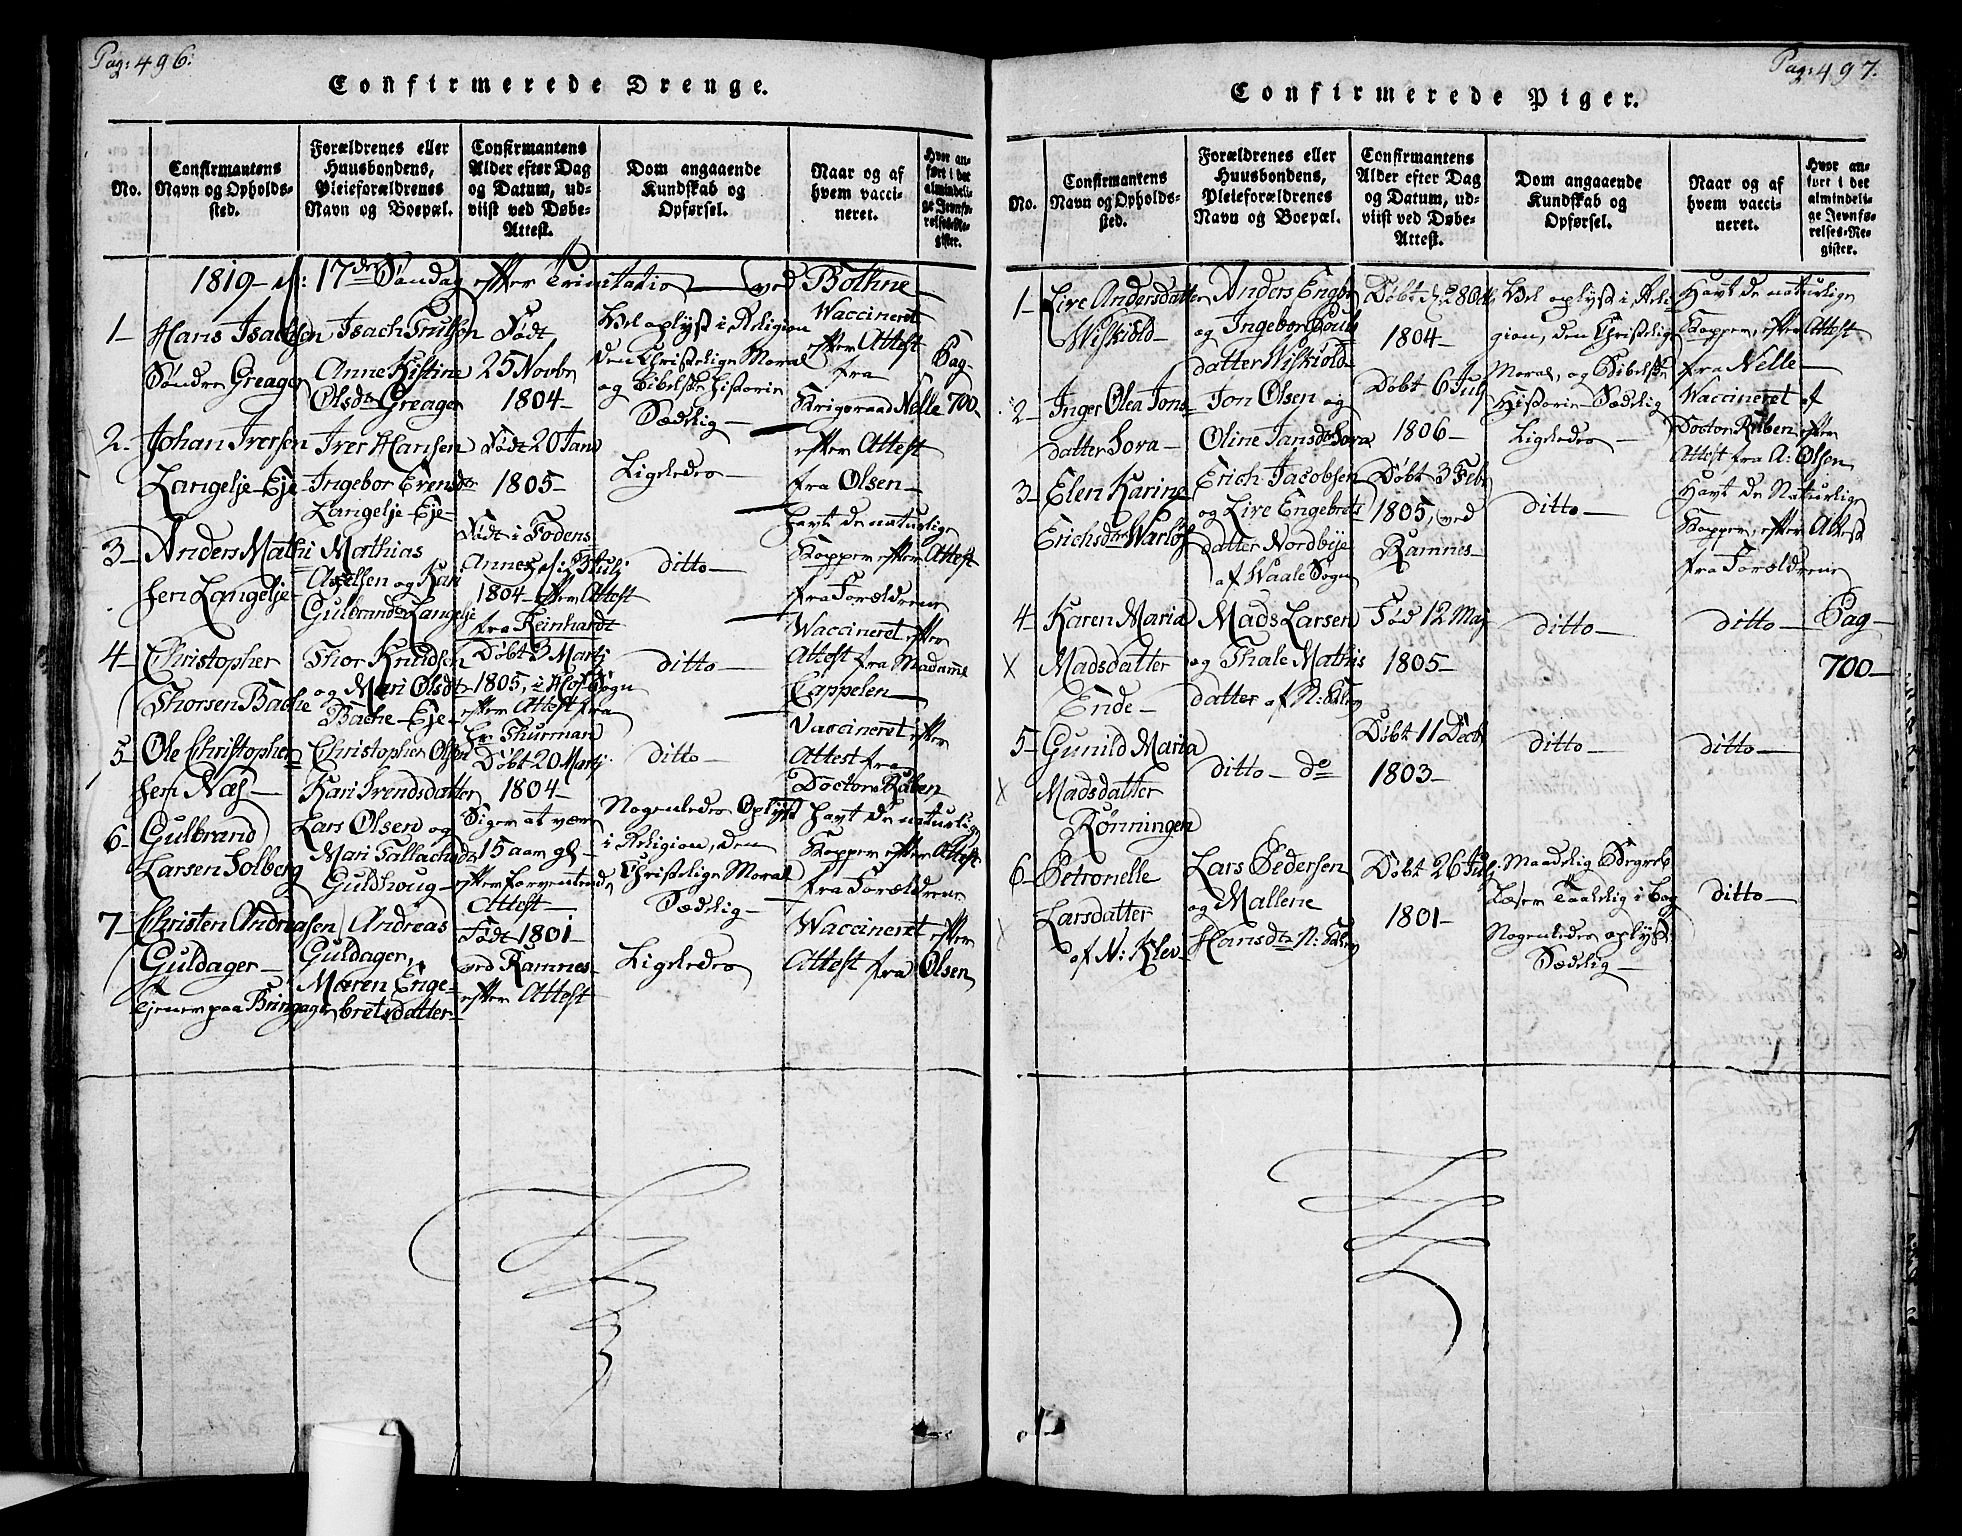 Pag: 496.
Confirmerede Drenge.
No.
Confirmantens
Navn og Opholds-
sted.
Forældrenes eller
Huusbondens,
Pleieforældrenes
Navn og Boepæl.
Confirmantens
Alder efter Dag
og Datum, ud-
viist ved Døbe-
Attest.
Dom angaaende
Kundskab og
Opførsel.
Naar og af
hvem vacci-
neret.
Hvor an-
ført i det
almindeli-
ge Jevnfø-
relses-Re-
gister.
1819 - 17de Søndag efter Trinitatis - ved Bothne -
1 -
Hans Isachsen
Søndre Greager
Isach
Anne Kistine
Olsdtr Greager
Født
25 Novbr
1804 -
Vel oplyst i Religion
den Christelige Moral
og Bibelske Historie
Sædelig -
Vaccineret
efter Attest
fra
Krigsraad Nelle
Pag-
700
2 -
Johan Iversen
Langelje-Eje
Iver Hansen
Ingebor Evensdtr
Langelje-Eje-
Født 20 Janv
1805 -
Ligeledes -
efter Attest
fra Olsen -
3 -
Anders Mathi
sen Langelje-
Mathias
Axelsen og Kari
Gulbrandsdtr Langelje
Født i Fodens
Annex, 2 July
1804 - efter Attest
fra Reinhardt
ditto -
havt de naturlige
Kopper efter Attest
fra Forældrene
4 -
Christopher
Thorsen Bache
Thor Knudsen
og Mari Olsdtr
Bache-Eje-
Døbt 3 Martj
1805, i Hof Sogn
efter Attest fra
Hr. Thurman
ditto -
Vaccineret efter
Attest fra Madame
Cappelen -
5 -
Ole Christopher
sen Næs -
Christopher Olsen
Kari Trendsdatter
Døbt 20 Martj
1804 -
ditto -
Vaccineret efter
Attest fra
Doctor Ruben
6 -
Gulbrand
Larsen Solberg
Lars Olsen og
Mari
Guldhoug -
Siger at være
15 aar gl -
efter forventende
Attest -
Nogenledes Oplyst
i Religion, den
Christelige Moral
Sædelig -
havt de naturlige
Kopper efter Attest
fra Forældrene
7 -
Christen Andreasen
Guldager -
Tjener paa Bringager
Andreas
Guldager,
Maren Enge-
bretsdatter -
Født 1801 -
ved Ramnes -
efter Attest
Ligeledes
Vaccineret efter
Attest fra Olsen
Pag: 497.
Confirmerede Piger.
No.
Confirmantens
Navn og Opholds-
sted.
Forældrenes eller
Huusbondens,
Pleieforældrenes
Navn og Boepæl.
Confirmantens
Alder efter Dag
og Datum, ud-
viist ved Døbe-
Attest.
Dom angaaende
Kundskab og
Opførsel.
Naar og af
hvem vacci-
neret.
Hvor an-
ført i det
almindeli-
ge Jevnfø-
relses-Re-
gister.
1 -
Live Andersdatter
Wilskiold -
Anders
og Ingebor Pouls
datter Wilskiold -
Døbt d.
1804 -
Vel oplyst i Reli
gion, den Christelige
Moral, og Bibelske
Historie Sædelig
Havt de naturlige
Kopper, efter Attest
fra Nelle -
2 -
Inger Olea Jons
datter Sora -
Jon Olsen og
Oline Jansdtr Sora
Døbt 6 July
1806 -
Ligeledes -
Vaccineret af
Doctor Ruben efter
Attest fra A: Olsen
3 -
Elen Karine
Erichsdtr Warlø
Erich Jacobsen
og Live Engebrets
datter Nordbye
af Waale Sogn
Døbt 3 Feb
1805, ved
Ramnes -
ditto -
Havt de Naturlige
Kopper, efter Attest
fra Forældrene
4 -
X
Karen Maria
Madsdatter
Ende -
Mads Larsen
og Thale Mathis
datter af N:
Fød 12 Maj
1805 -
ditto -
ditto -
Pag -
700 -
5 -
X
Gunild Maria
Madsdatter
Rønningen
ditto - do
Døbt 11 Decbr
1803 -
ditto -
ditto -
6 -
X
Petronelle
Larsdatter
af N: Klev -
Lars Pedersen
og Mallene
Hansdtr N:
Døbt 26 July
1801 -
Maadelig Begreb
Læser Taalelig i Bog
Nogenledes oplyst
Sædelig -
ditto -